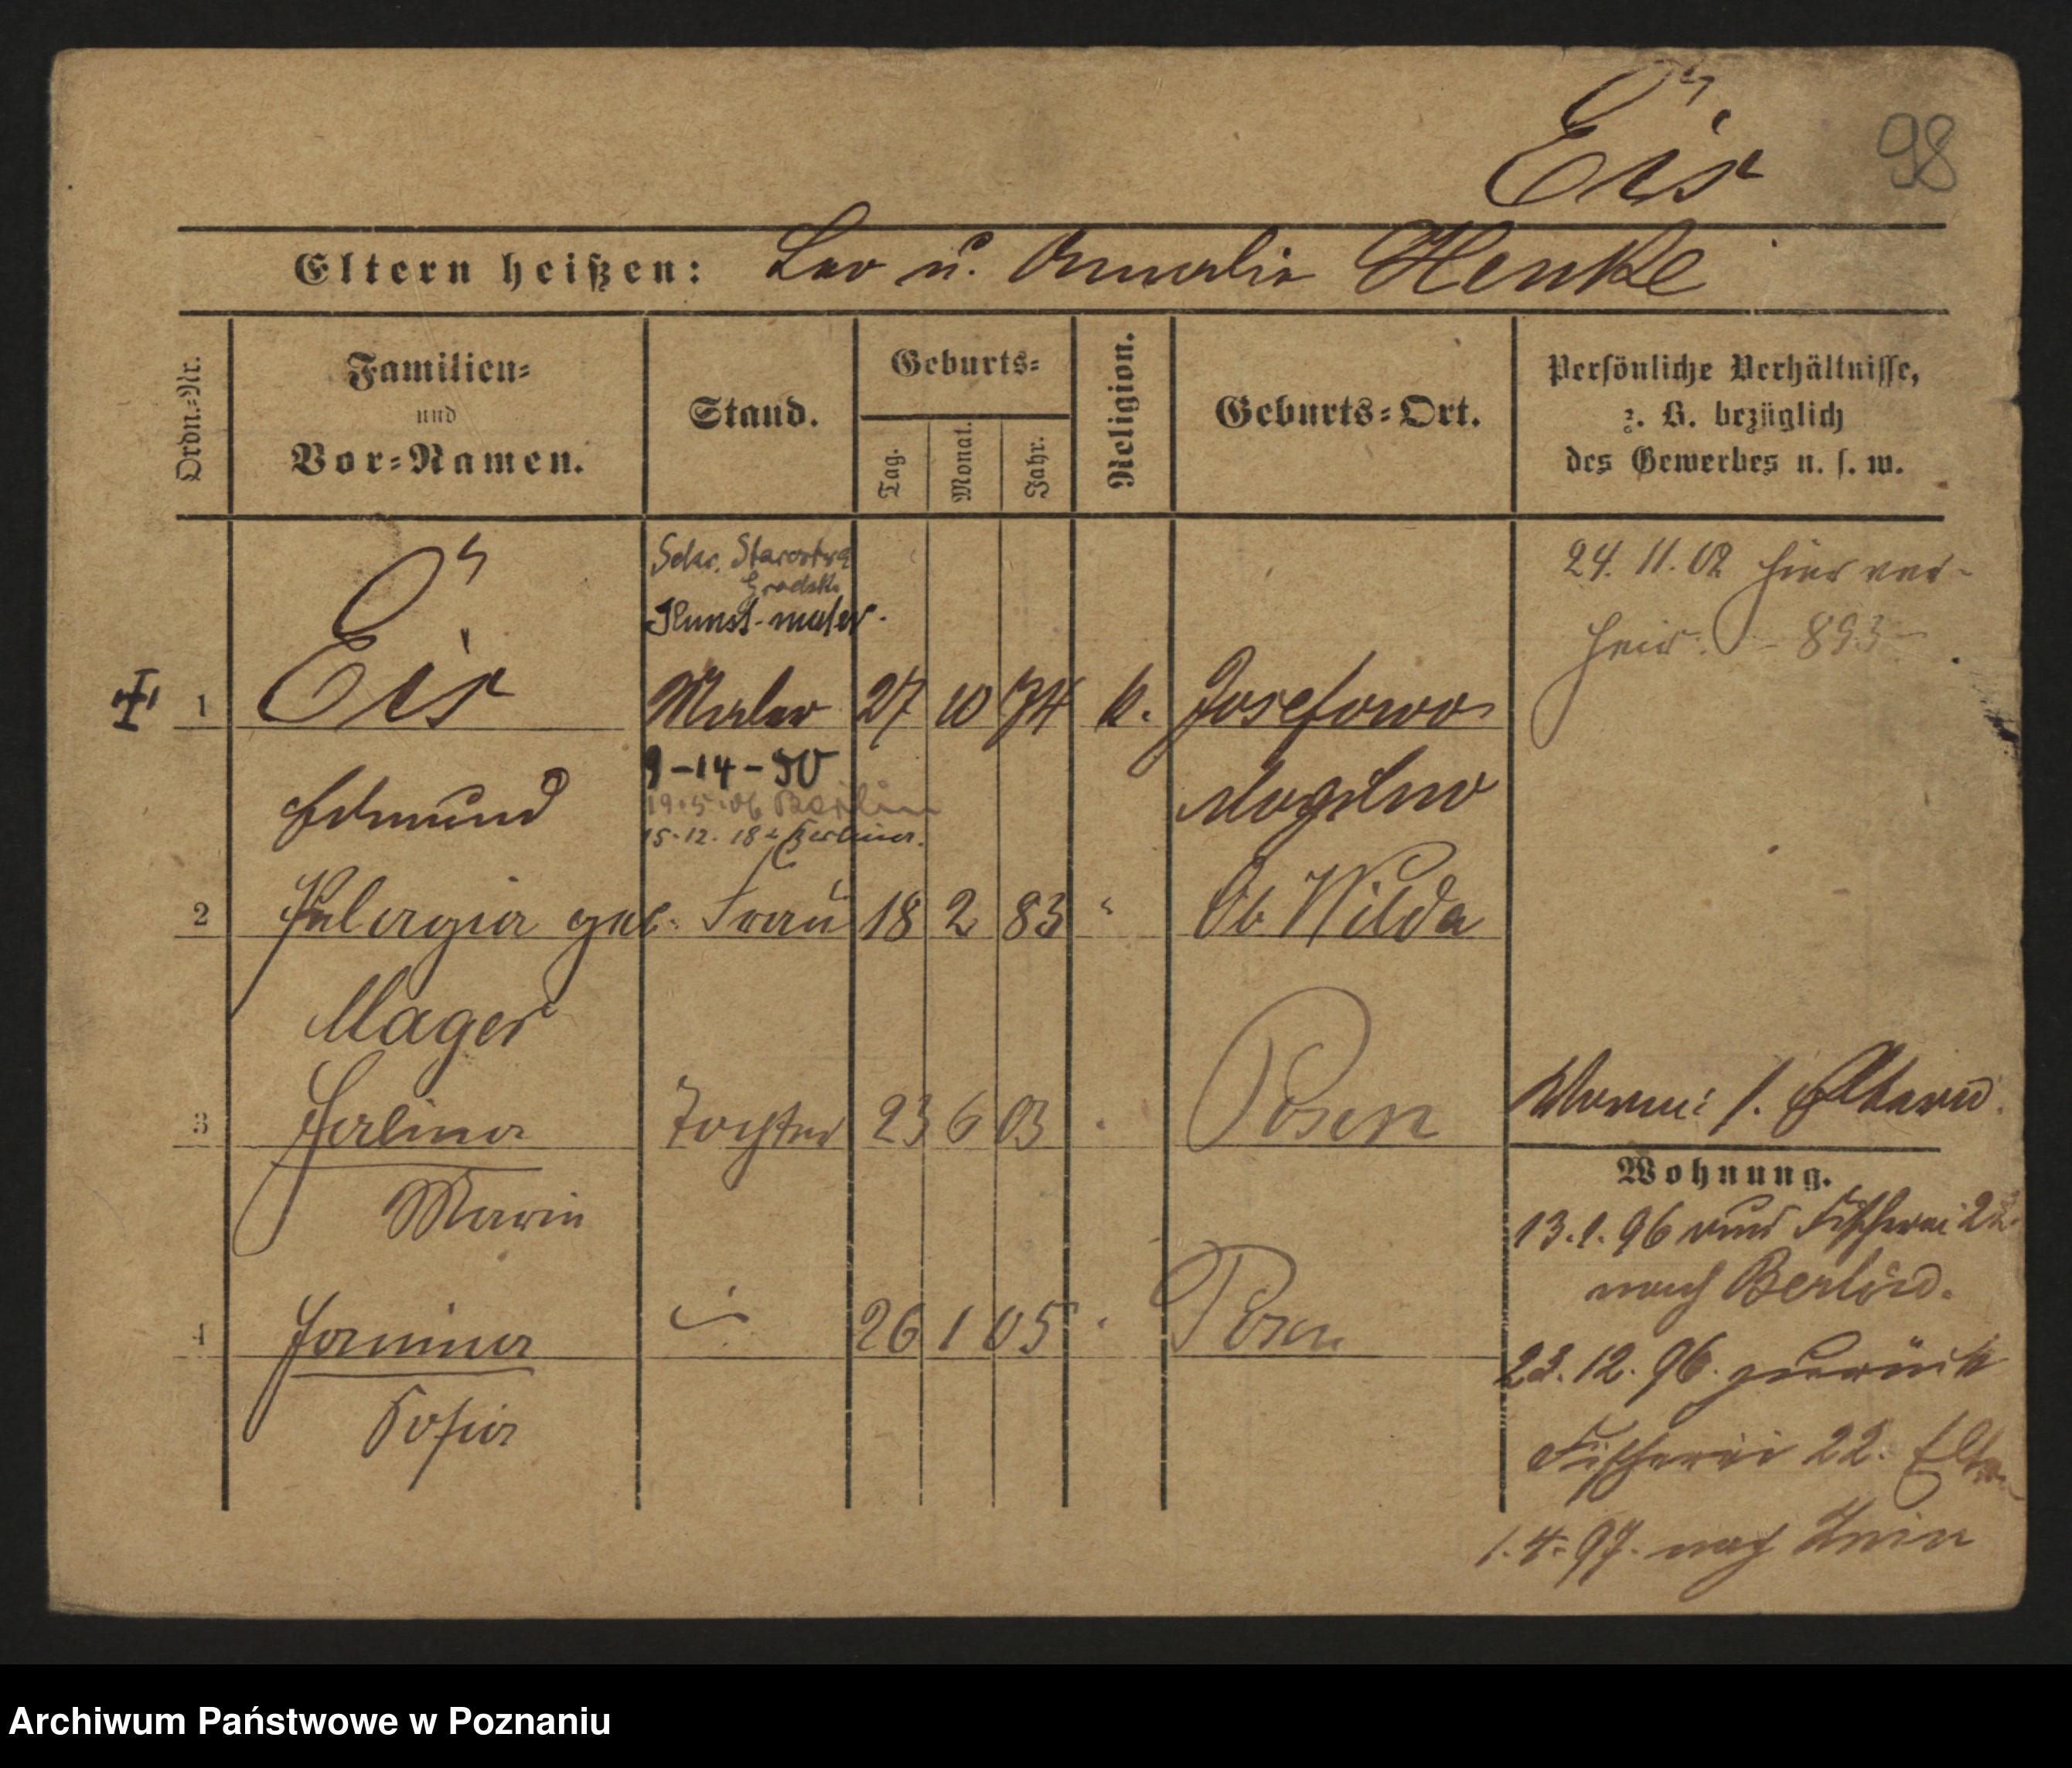 Eis
98
Eltern heißen: Leo u. Amalie Henke
Ordn.-Nr.
Familien-
und
Vor-Namen.
Stand.
Geburts-
Tag.
Monat.
Jahr.
Religion.
Geburts-Ort.
Persönliche Verhältnisse,
z. B. bezüglich
des Gewerbes u. s. w.
Sekr. Starostwa
Grodzk.
Kunst-maler.
24. 11. 02 hier ver-
heir. - 893 -
1 Eis Maler 27 10 74 k. Josefowo
9-14-50
Edmund 19.5.06 Berlin Mogilno
15.12.18 Berliner.
2 Pelagia geb. Frau 18 2 83 " Ob Wilda
Mager
3 Halina Tochter 23 6 03 " Posen
Marie
Vorm: s. Eltern
Wohnung.
13.1.96 von Fischerei 22
nach Berlin.
4 Janina " 26 1 05 " Posen
Sofia
23.12.96. zurück
Fischerei 22. Eltern
1.4.97. nach Znin
Archiwum Państwowe w Poznaniu